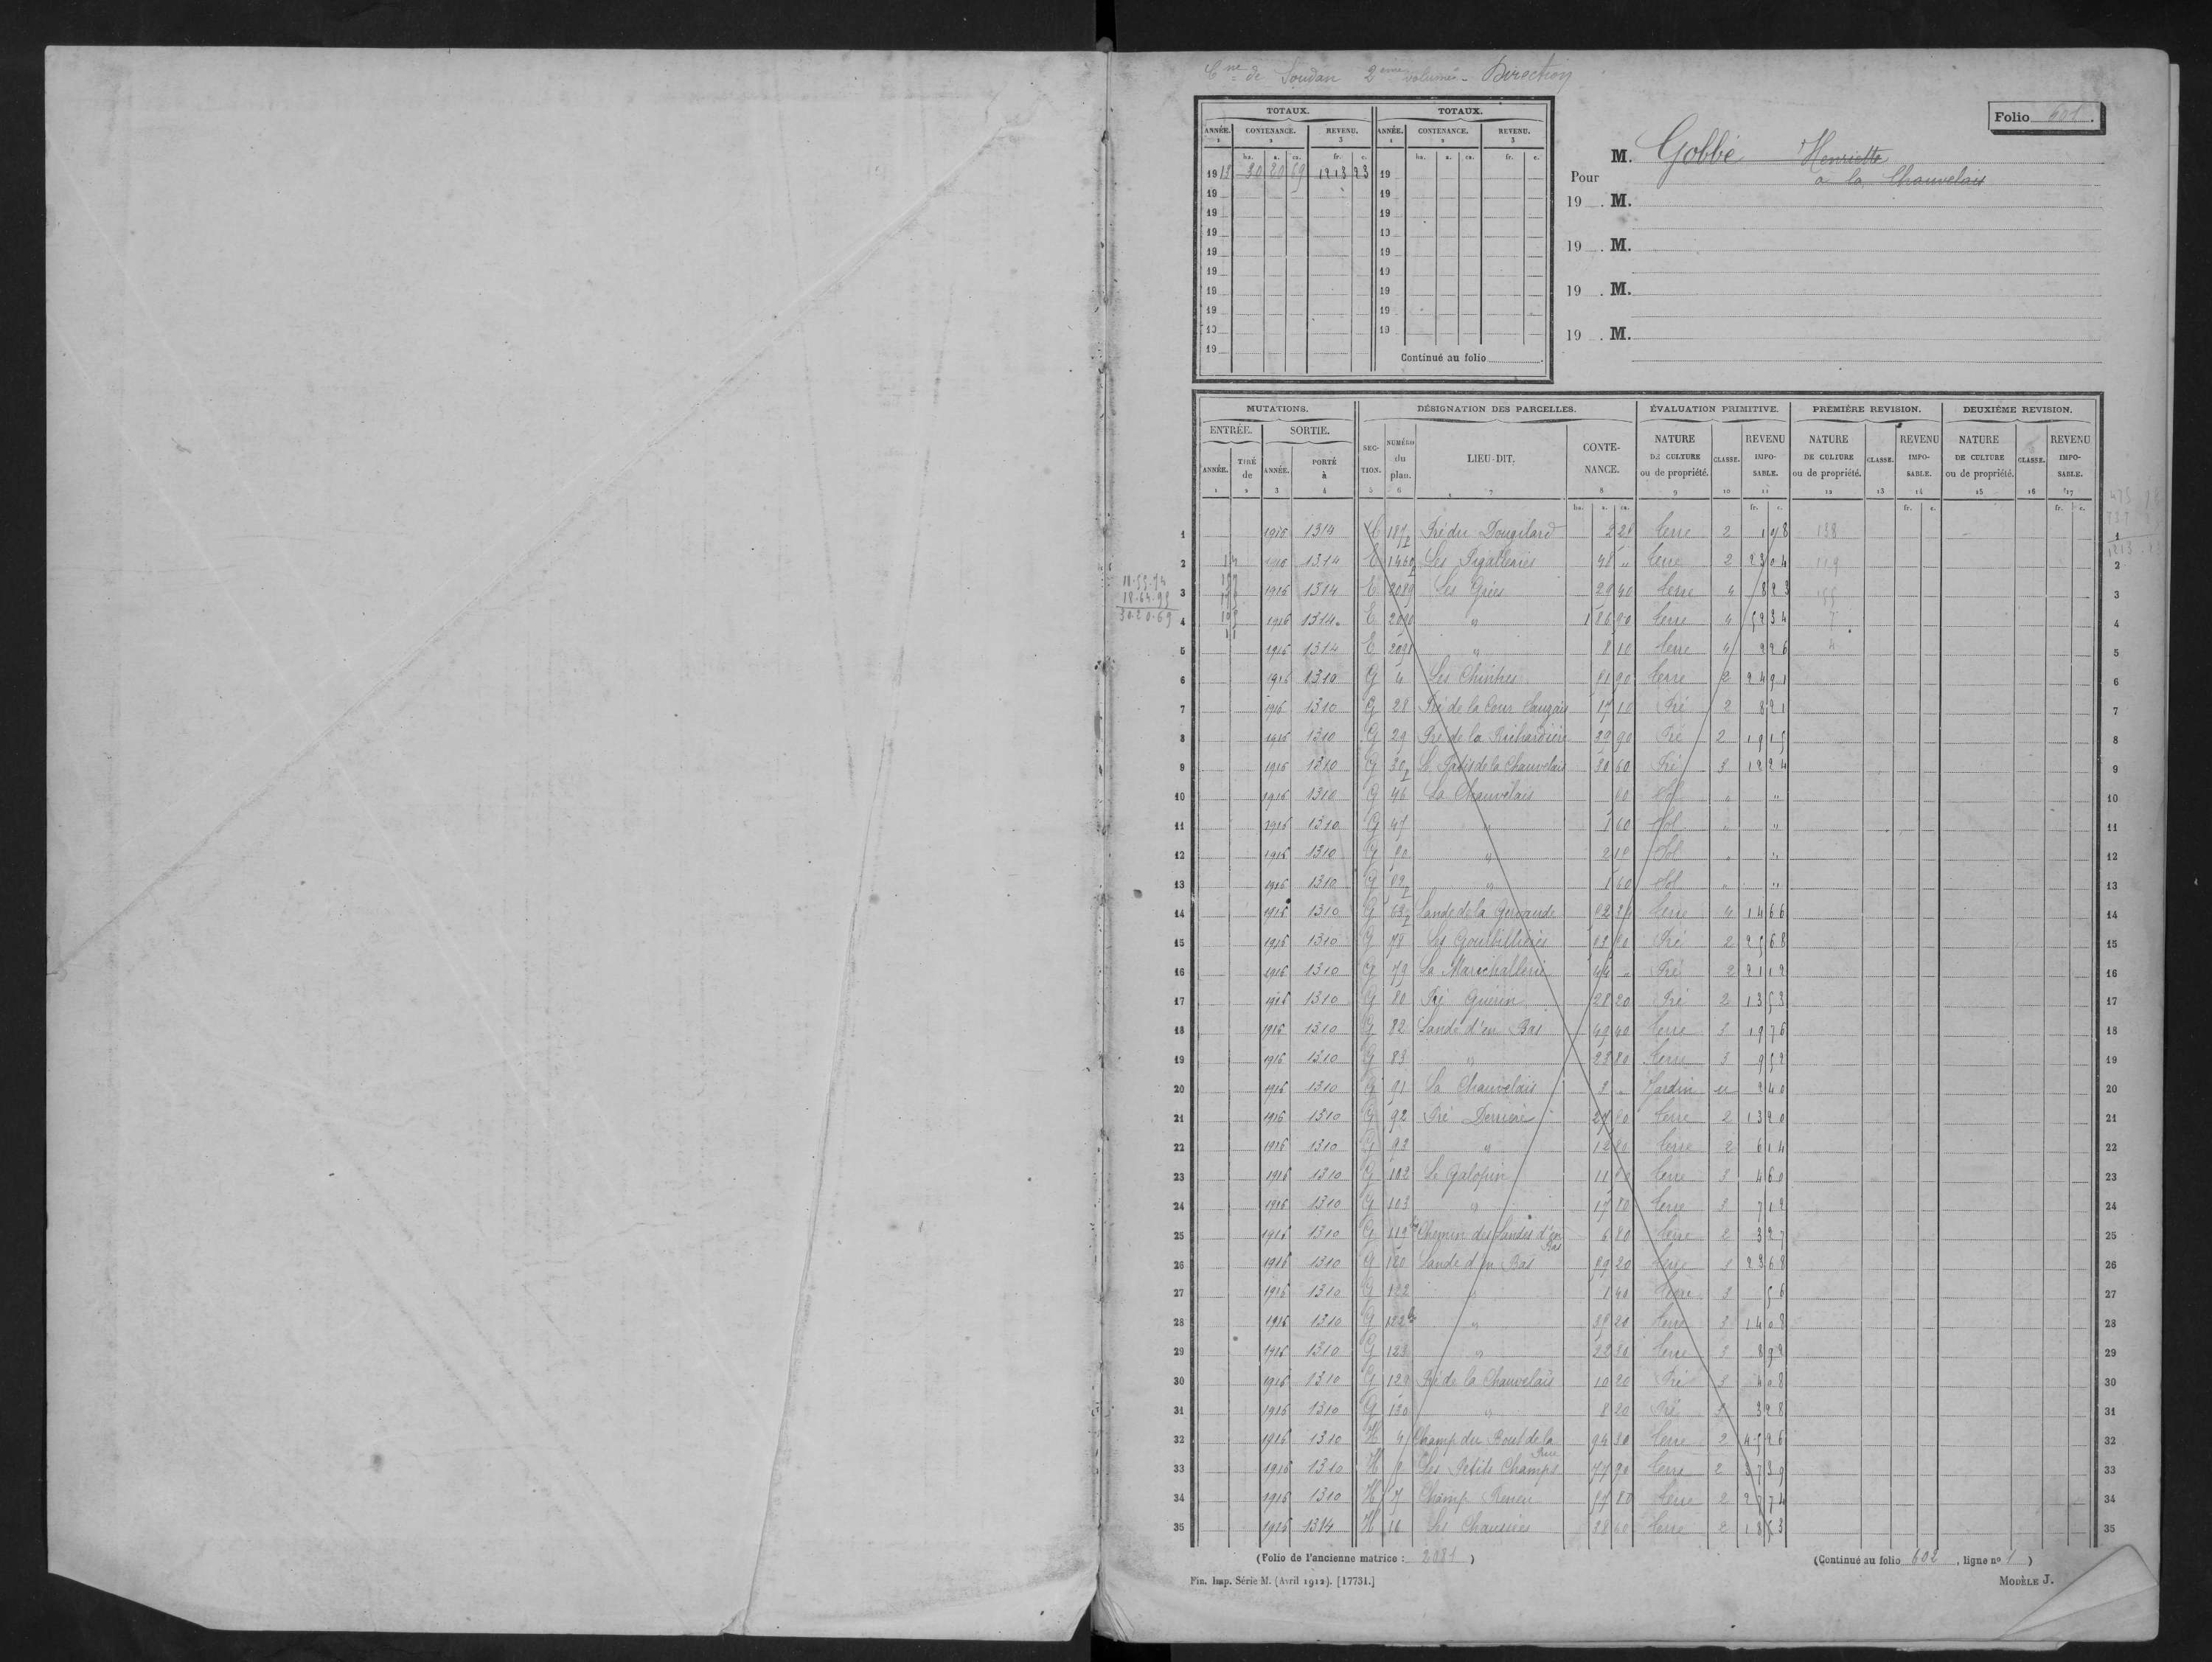 Cne de Soudan 2ème volume - Direction
Folio 601.
TOTAUX. TOTAUX.
ANNÉE. CONTENANCE. REVENU. ANNÉE. CONTENANCE. REVENU.
1 2 3 1 2 3
ha. a. ca. fr. c. ha. a. ca. fr. c.
1913 30 20 69 1213 23 19
19 19
19 19
19 19
19 19
19 19
19 19
19 19
19 19
19 Continué au folio
Pour M. Gobbé Henriette
à la Chauvelais
19 . M.
19 . M.
19 . M.
19 . M.
MUTATIONS. DÉSIGNATION DES PARCELLES. ÉVALUATION PRIMITIVE. PREMIÈRE REVISION. DEUXIÈME REVISION.
ENTRÉE. SORTIE. SECTION. NUMÉRO du plan. LIEU-DIT. CONTENANCE. NATURE DE CULTURE ou de propriété. CLASSE. REVENU IMPOSABLE. NATURE DE CULTURE ou de propriété. CLASSE. REVENU IMPOSABLE. NATURE DE CULTURE ou de propriété. CLASSE. REVENU IMPOSABLE.
ANNÉE. TIRÉ de ANNÉE. PORTÉ à
1 2 3 4 5 6 7 8 9 10 11 12 13 14 15 16 17
ha. a. ca. fr. c. fr. c. fr. c.
1 1916 1314 E Pré du Terre 2 1 138 1
2 1916 1314 E 48 " Terre 2 23 04 119 2
3 1916 1314 E 2089 Les Grées 29 40 Terre 4 8 23 3
4 1916 1314 E 2090 " 1 86 90 Terre 4 52 34 7 4
5 1916 1314 E 2091 " 8 10 Terre 4 2 26 4 5
6 1916 1310 G 4 Les Chintres 90 Terre 2 24 91 6
7 1916 1310 G 28 Pré de la Cour 17 10 Pré 2 8 21 7
8 1916 1310 G 29 Pré de la Richardière 39 90 Pré 2 19 15 8
9 1916 1310 G 30 Le Patis de la Chauvelais 30 60 Pré 3 12 24 9
10 1916 1310 G 46 La Chauvelais 60 Sol " " 10
11 1916 1310 G 47 " 1 60 Sol " " 11
12 1916 1310 G " 2 10 Sol " " 12
13 1916 1310 G " 1 60 Sol " " 13
14 1916 1310 G Lande de la Terre 4 14 66 14
15 1916 1310 G 78 Les Pré 2 25 68 15
16 1916 1310 G 79 La Marichallerie 44 " Pré 2 21 12 16
17 1916 1310 G 80 Pré Guérin 28 20 Pré 2 13 53 17
18 1916 1310 G 82 Lande d'en Bas 49 40 Terre 3 19 76 18
19 1916 1310 G 83 " 23 80 Terre 3 9 52 19
20 1916 1310 G 91 La Chauvelais " Jardin 2 40 20
21 1916 1310 G 92 Pré Terre 2 13 20 21
22 1916 1310 G 93 " 12 80 Terre 2 6 14 22
23 1916 1310 G 102 Le Galopin 11 Terre 3 4 60 23
24 1916 1310 G 103 " 17 80 Terre 3 7 12 24
25 1916 1310 G 119 Chemin des Landes d'en Bas 6 80 Terre 2 3 27 25
26 1916 1310 G 120 Lande d'en Bas 59 20 Terre 3 23 68 26
27 1916 1310 G 122 " 1 40 Terre 3 56 27
28 1916 1310 G 122 " 35 20 Terre 3 14 08 28
29 1916 1310 G 123 " 22 30 Terre 3 8 92 29
30 1916 1310 G 129 Pré de la Chauvelais 10 20 Pré 3 4 08 30
31 1916 1310 G 130 " 8 20 Pré 3 3 28 31
32 1916 1310 H 4 Champ du Bout de la Rue 94 30 Terre 2 45 26 32
33 1916 1310 H Les Petits Champs 77 90 Terre 2 37 39 33
34 1916 1310 H 7 Champ 57 80 Terre 2 27 74 34
35 1916 1314 H Les 38 60 Terre 2 18 53 35
18-64-95
30-20-69
(Folio de l'ancienne matrice : 2081 )
(Continué au folio 602 , ligne no 1 )
Fin. Imp. Série M. (Avril 1912). [17731.]
MODÈLE J.